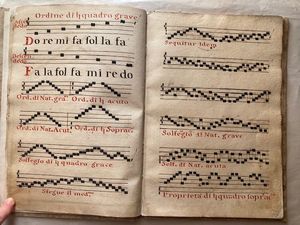 Ordine di ♮ quadro grave
Do re mi fa sol la fa
Fa la sol fa mi re do
Ord. di Nat. gra. Ord. di ♮ acuto
Ord. di Nat. Acut. Ord. di ♮ Soprac.
Solfegio di ♮ quadro grave
Siegue il med.
Sequitur idem
Solfegio di Nat. grave
Solf. di Nat. acuta
Proprietà di ♮ quadro soprac.